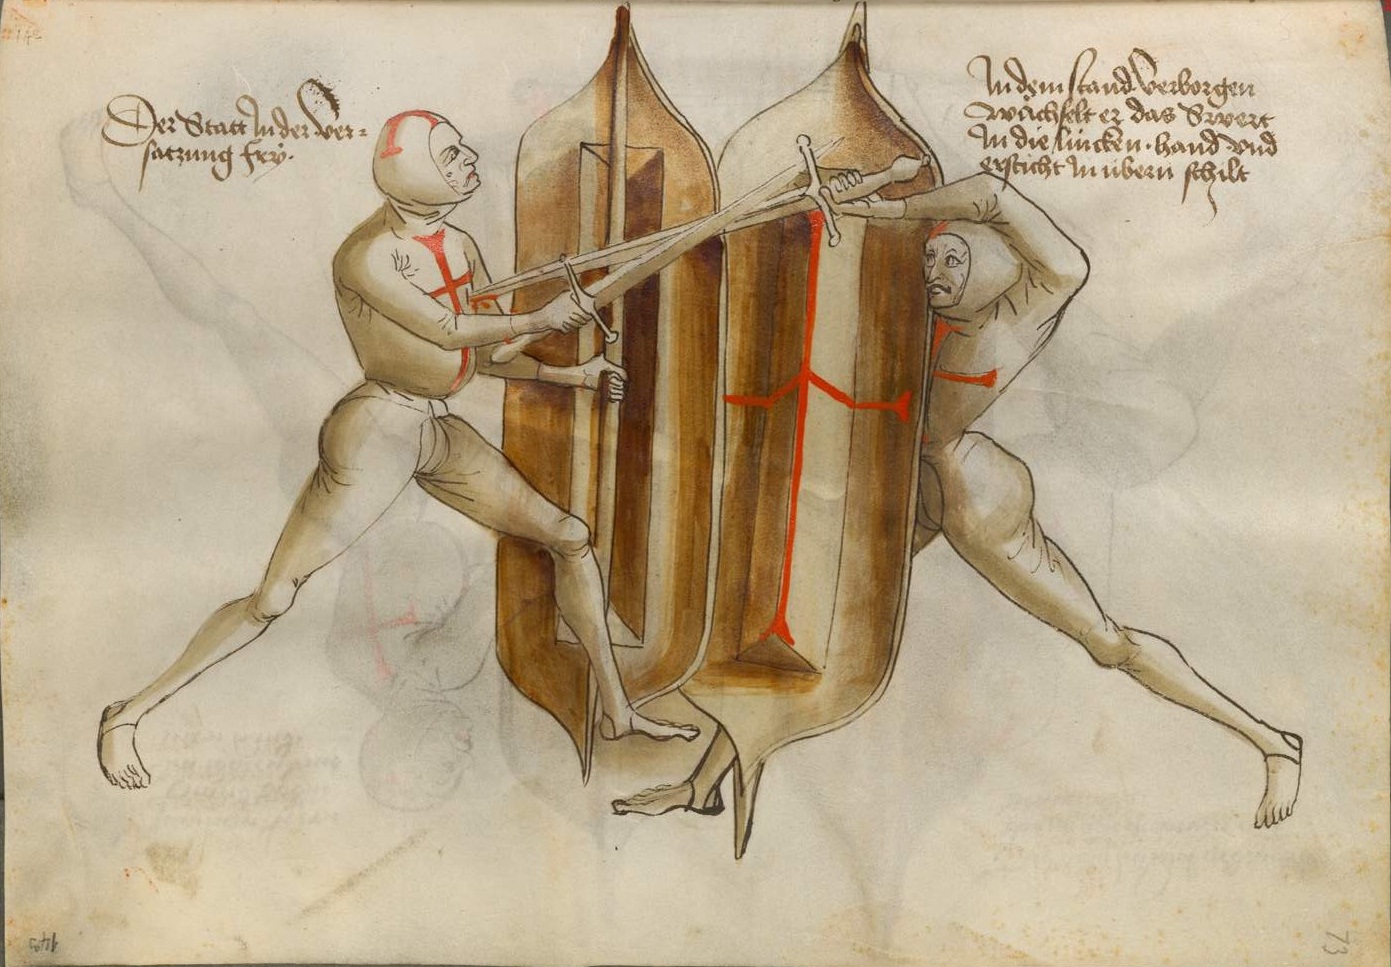 Der Statt In der Ver=
satzung fry.
In dem stand verborgen
wächselt er das Swert
In die lincken · hand vnd
ersticht In übern schilt
142
73